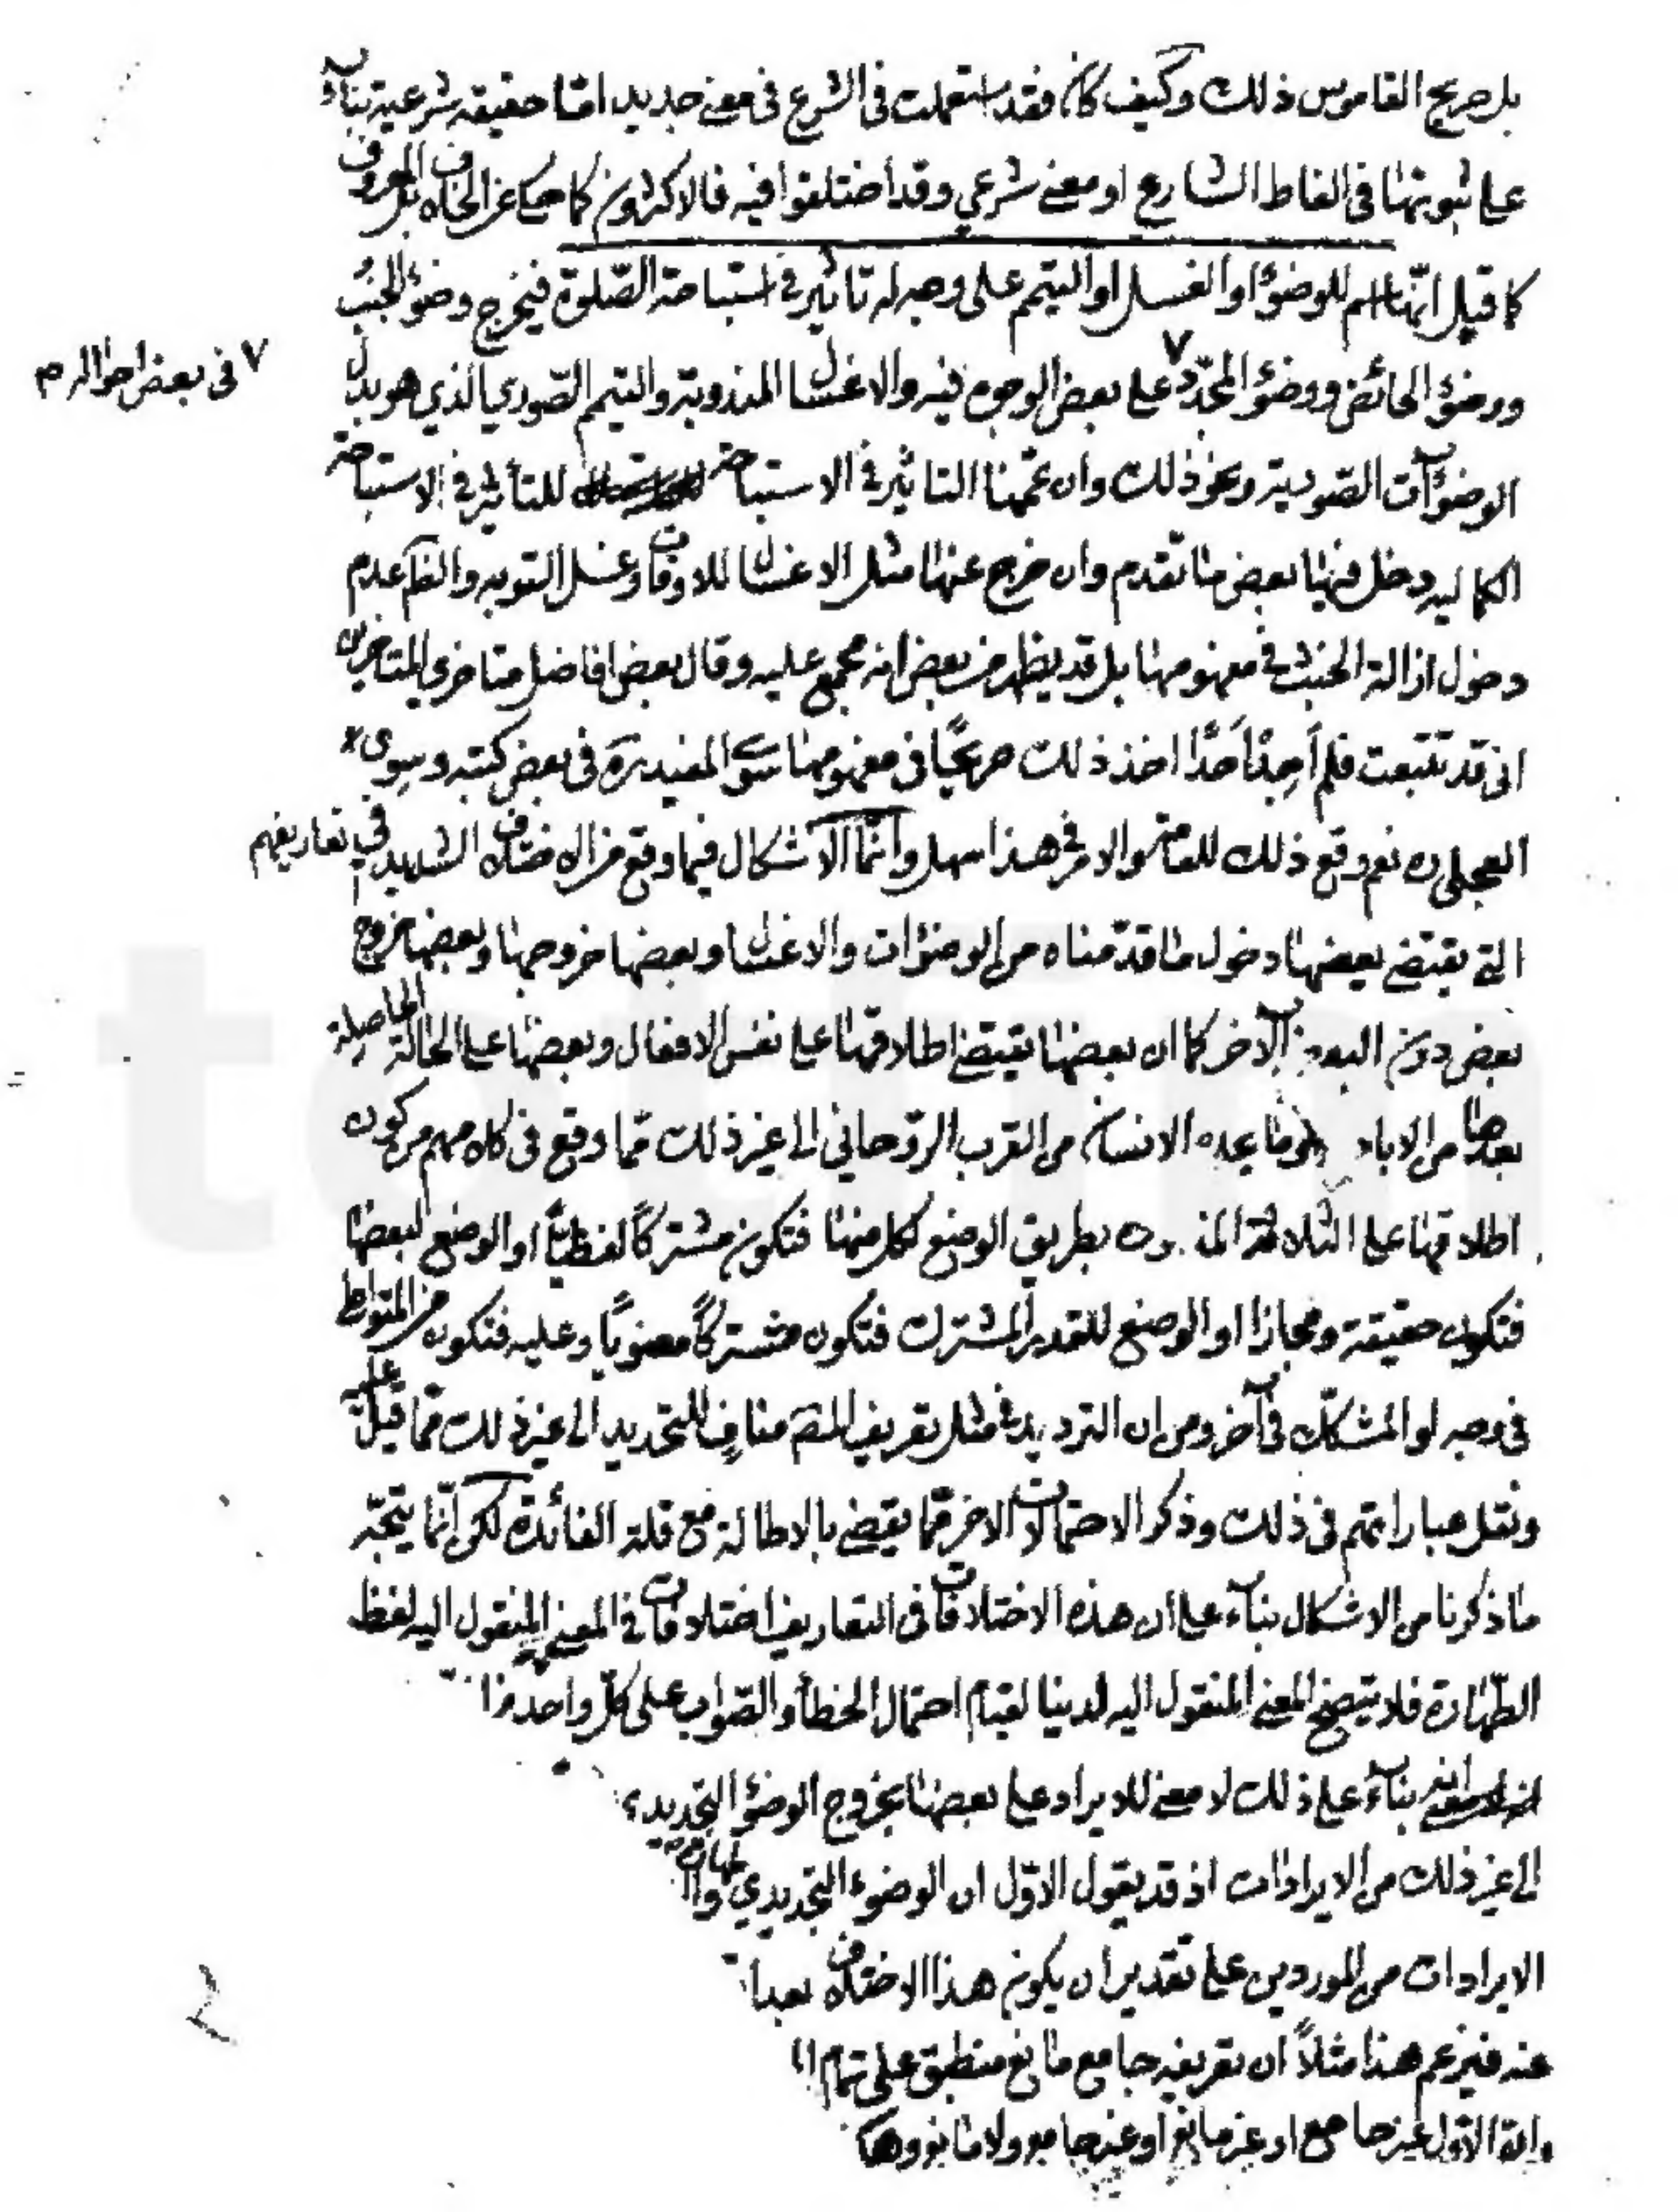 بل صريح القاموس ذلك وكيف كان فقد استعملت فى الشرع فى معنى جديد امّا حقيقة شرعية بناءً
على ثبوتها فى الفاظ الشارع او معنى شرعي وقد اختلفوا فيه فالاكثرون كما حكى عن الخلاف بل المعروف
كما قيل انّها اسم للوضوء او الغسل او التيمم على وجه له تأثير فى استباحة الصّلوة فيخرج وضوء الجنب
ووضوء الحائض ووضوء المجدّد ٧ على بعض الوجوه فيه والاغسال المندوبة والتيمم الصّوري الذي هو بدل
٧ فى بعض احواله م
الوضوءآت الصّورية ونحو ذلك وان عمّمنا التأثير فى الاستباحة للتأثير فى الاستباحة
الكمالية دخل فيها بعض ما تقدم وان خرج عنها مثل الاغسال للاوقات وغسل التوبه والظاهر عدم
دخول ازالة الخبث فى مفهومها بل قد يظهر من بعض انه مجمع عليه وقال بعض افاضل متاخري المتاخرين
انى قد تتبعت فلم أجد أحدًا اخذ ذلك صريحًا فى مفهومها سوى المفيد ره فى بعض كتبه وسوى
العجلى ره نعم وقع ذلك للعامة والامر فى هذا سهل وانّما الاشكال فيما وقع من الاختلاف الشديد فى تعاريفهم
التى يقتضى بعضها دخول ما قدّمناه من الوضوءات والاغسال وبعضها خروجها وبعضها خروج
بعض دون البعض الاخر كما ان بعضها يقتضى اطلاقها على نفس الافعال وبعضها على الحالة الحاصلة
بعدها من الاباحة وما يجده الانسان من القرب الرّوحاني الى غير ذلك ممّا وقع فى كلامهم من كون
اطلاقها على الثلاثة المذ وره بطريق الوضع لكل منها فتكون مشتركًا لفظيًّا او الوضع لبعضها
فتكون حقيقة ومجازا او الوضع للقدر المشترك فتكون مشتركًا معنويًا وعليه فتكون من المتواطى
فى وجه او المشكّك فى آخر ومن ان الترديد فى مثل تعريف المص منافٍ للتحديد الى غير ذلك ممّا قيل عليه
ونقل عباراتهم فى ذلك وذكر الاحتمالات الاخر ممّا يقضى بالاطالة مع قلة الفائدة لكن انّما يتجّه
ما ذكرنا من الاشكال بناءً على أن هذه الاختلافات فى التعاريف اختلافات فى المعنى المنقول اليه لفظ
الطّهارة فلا يتضح المعنى المنقول اليه لدينا لقيام احتمال الخطأ والصّواب على كلّ واحد
بناءً على ذلك لا معنى للايراد على بعضها بخروج الوضوء التجديدي
الى غير ذلك من الايرادات اذ قد يقول الاوّل ان الوضوء التجديدي
الايرادات من الموردين على تقدير ان يكون هذا الاختلاف بعدا
عنه فيزعم هذا مثلاً ان تعريفه جامع مانع منطبق على تمام
الاوّل غير جامع او غير مانع او غير جامع ولا مانع وهكذا